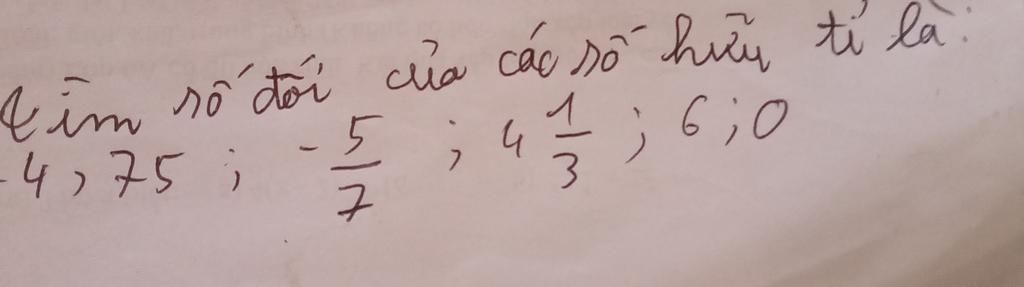 tìm số đối của các số hữu tỉ là:
-4,75; -5/7; 4 1/3; 6; 0